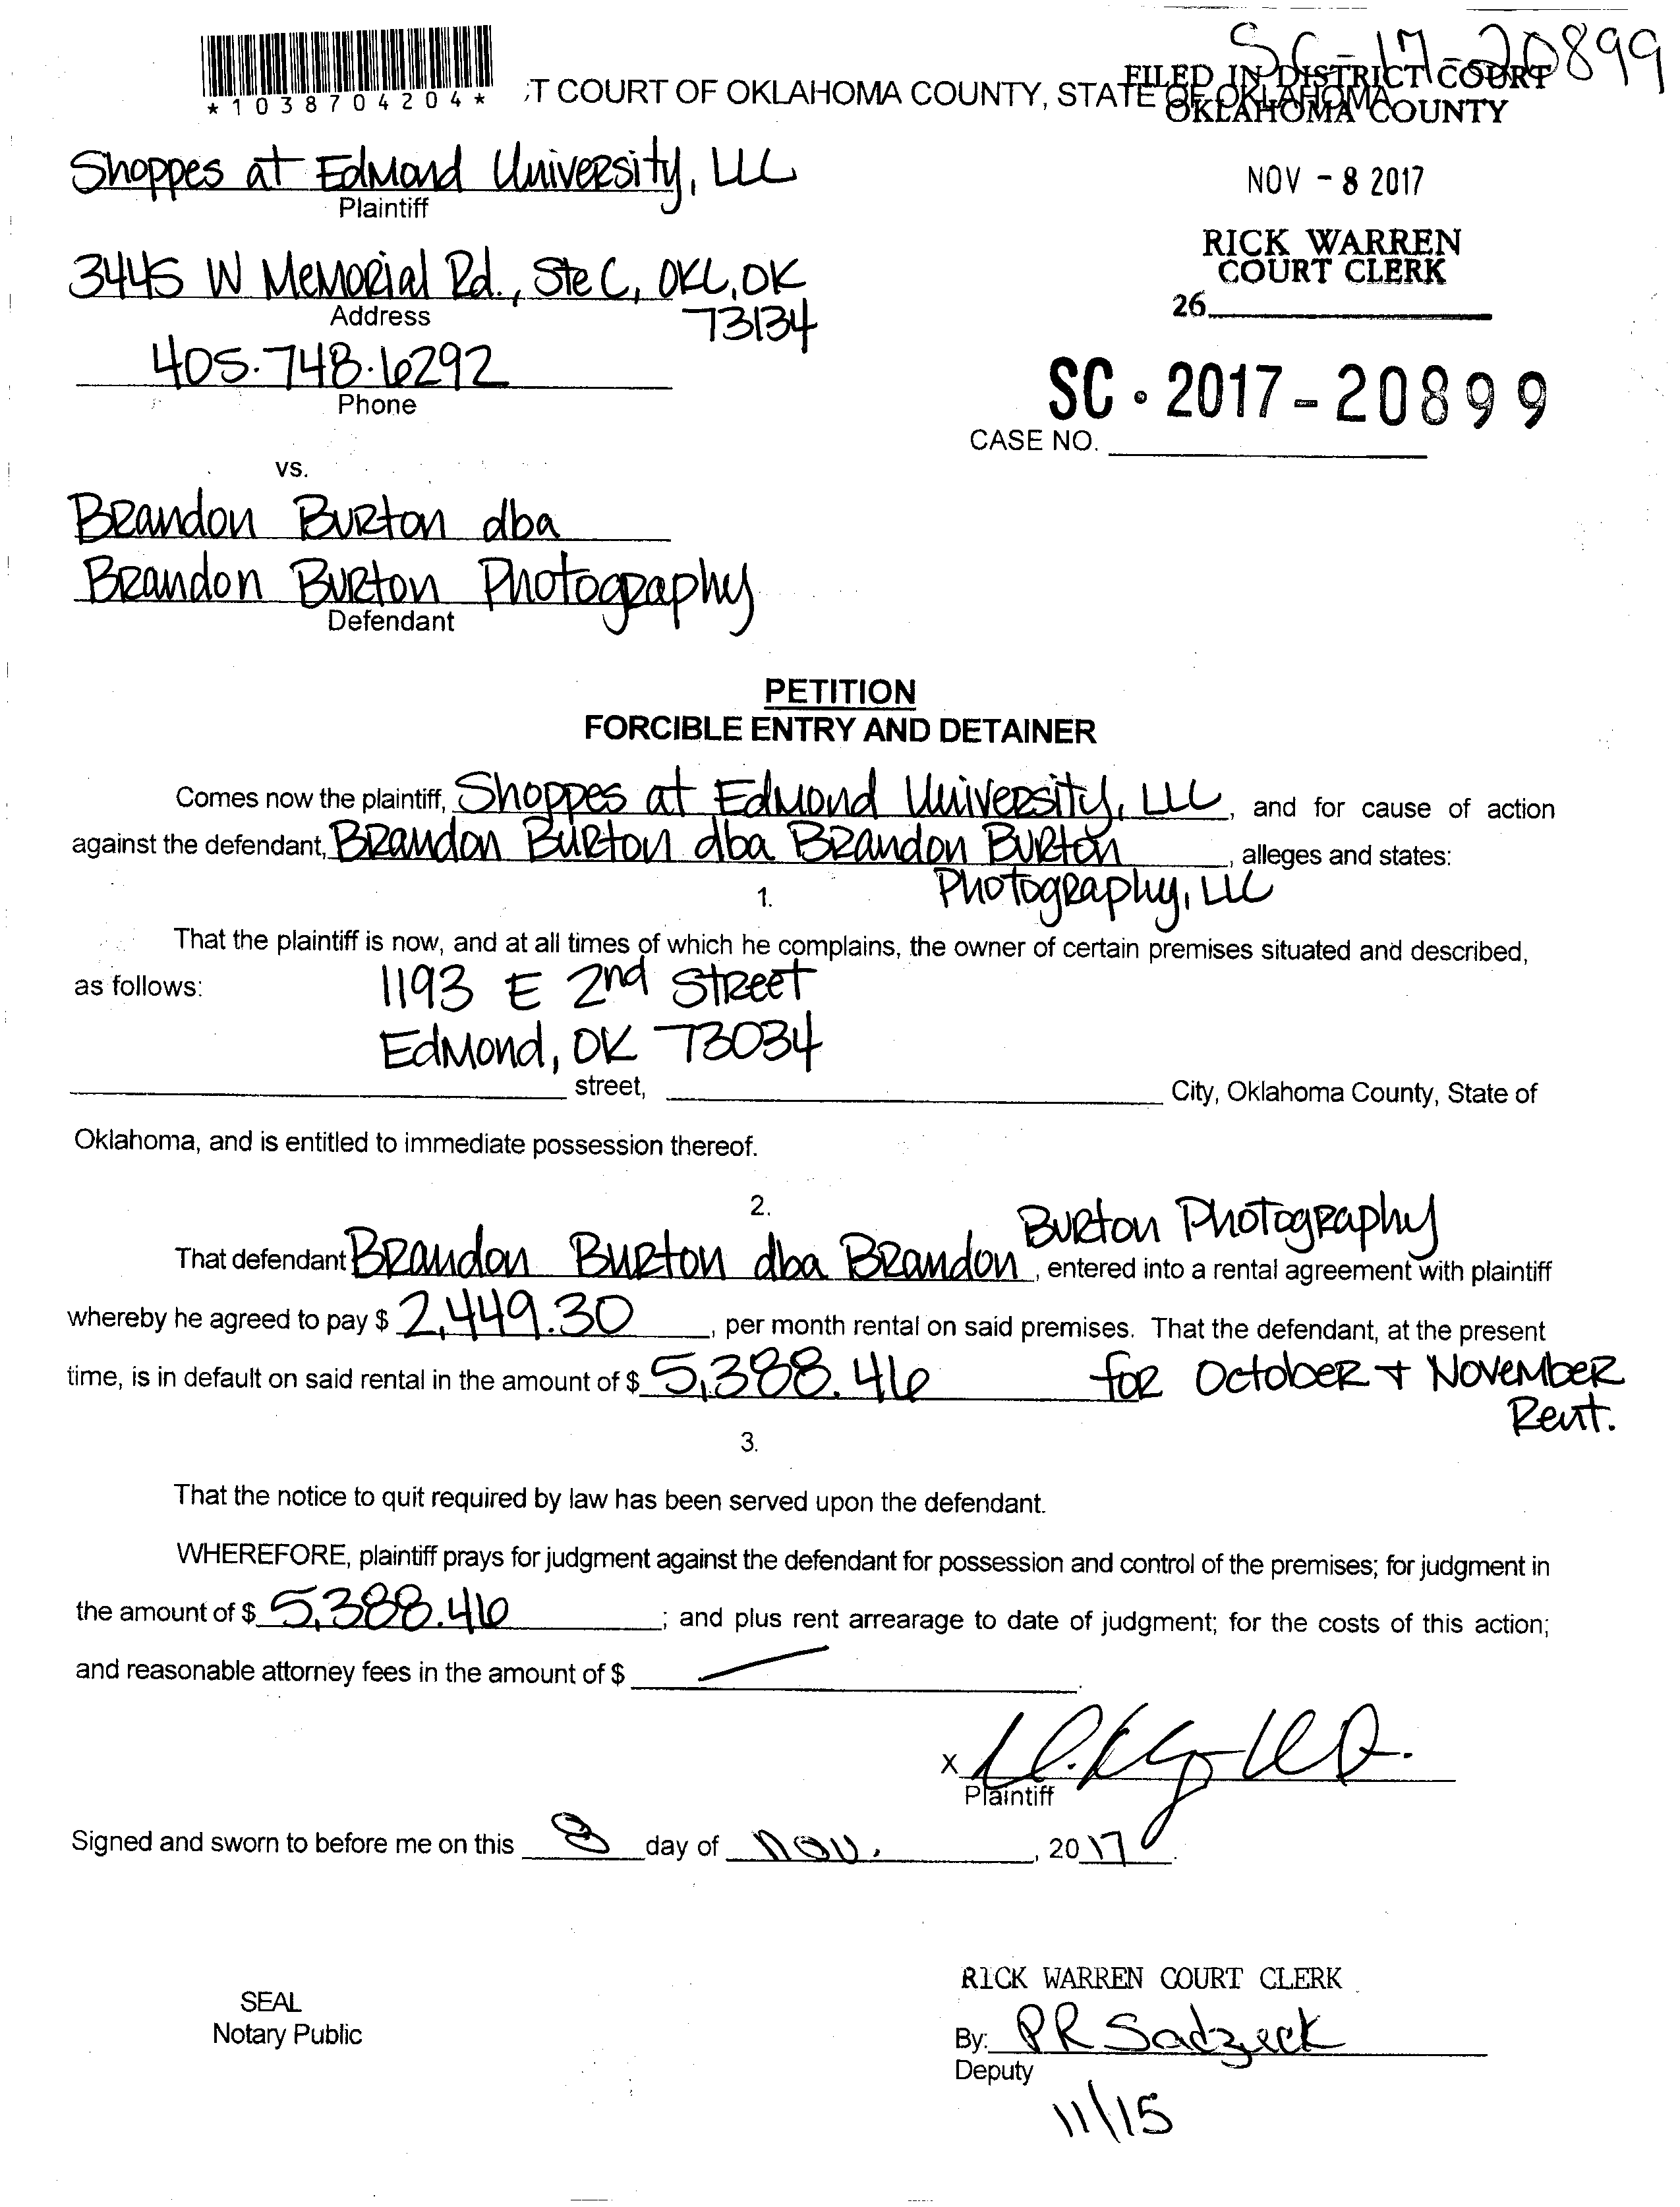 SC-17-20899
*1038704204*
;T COURT OF OKLAHOMA COUNTY, STATE OF OKLAHOMA
FILED IN DISTRICT COURT
OKLAHOMA COUNTY
Shoppes at Edmond University, LLC
Plaintiff
NOV - 8 2017
RICK WARREN
COURT CLERK
26
3445 W Memorial Rd., Ste C, OKC, OK
Address
73134
405.748.6292
Phone
SC - 2017 - 20899
CASE NO.
vs.
Brandon Burton dba
Brandon Burton Photography
Defendant
PETITION
FORCIBLE ENTRY AND DETAINER
Comes now the plaintiff, Shoppes at Edmond University, LLC, and for cause of action
against the defendant, Brandon Burton dba Brandon Burton, alleges and states:
Photography, LLC
1.
That the plaintiff is now, and at all times of which he complains, the owner of certain premises situated and described,
as follows: 1193 E 2nd Street
Edmond, OK 73034
street, City, Oklahoma County, State of
Oklahoma, and is entitled to immediate possession thereof.
2.
Burton Photography
That defendant Brandon Burton dba Brandon, entered into a rental agreement with plaintiff
whereby he agreed to pay $ 2,449.30, per month rental on said premises. That the defendant, at the present
time, is in default on said rental in the amount of $ 5,388.46 for October + November
Rent.
3.
That the notice to quit required by law has been served upon the defendant.
WHEREFORE, plaintiff prays for judgment against the defendant for possession and control of the premises; for judgment in
the amount of $ 5,388.46; and plus rent arrearage to date of judgment; for the costs of this action;
and reasonable attorney fees in the amount of $ .
X
Plaintiff
Signed and sworn to before me on this 8 day of Nov., 2017.
RICK WARREN COURT CLERK
SEAL
Notary Public
By: PR Sadzeck
Deputy
11/15